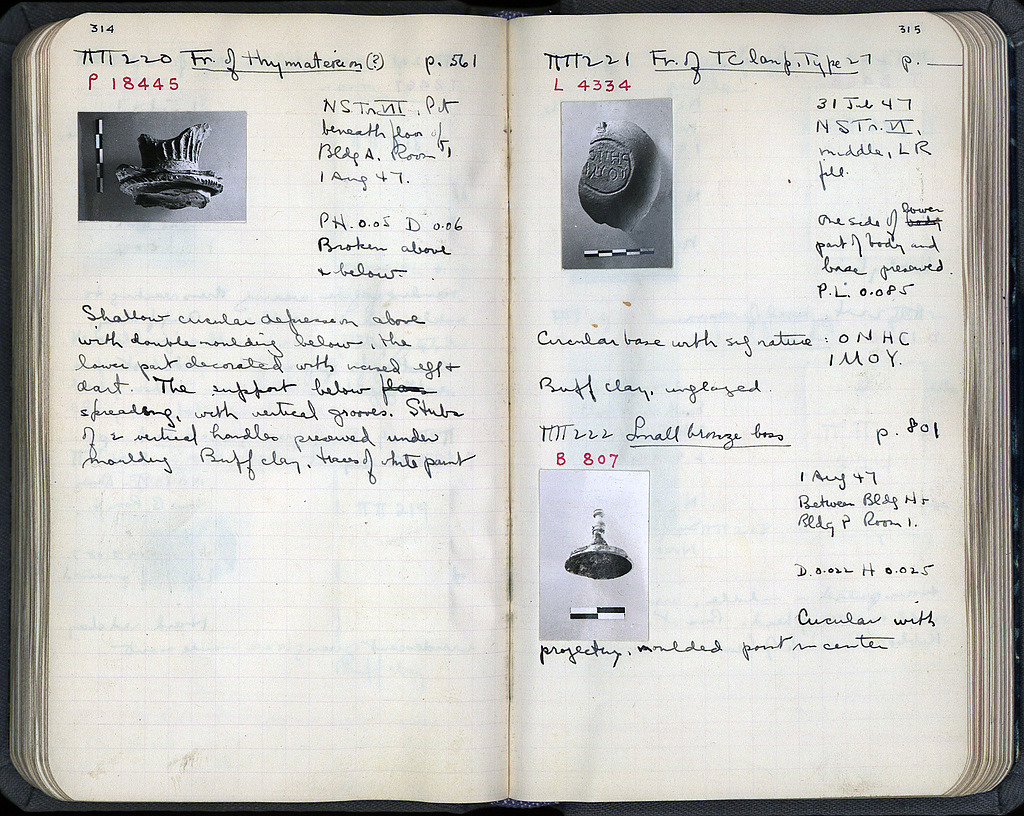 314
ΠΠ 220 Fr. of thymaterion (?) p. 561
P 18445
NS Tr. VII, Pit
beneath floor of
Bldg A. Room 1
1 Aug 47.
P.H. 0.05 D 0.06
Broken above
& below.
Shallow circular depression above
with double moulding below, the
lower part decorated with raised egg &
dart. The support below
spreading, with vertical grooves. Stubs
of 2 vertical handles preserved under
moulding Buff clay, traces of white paint
315
ΠΠ 221 Fr. of TC lamp, Type 27 p. —
L 4334
31 Jul 47
NS Tr. VI,
middle, LR
fill.
One side of lower
part of body and
base preserved.
P.L. 0.085
Circular base with signature : ONHC
IMOY.
Buff clay, unglazed.
ΠΠ 222 Small bronze boss p. 801
B 807
1 Aug 47
Between Bldg N &
Bldg P Room 1.
D. 0.022 H 0.025
Circular with
projecting, moulded point in center